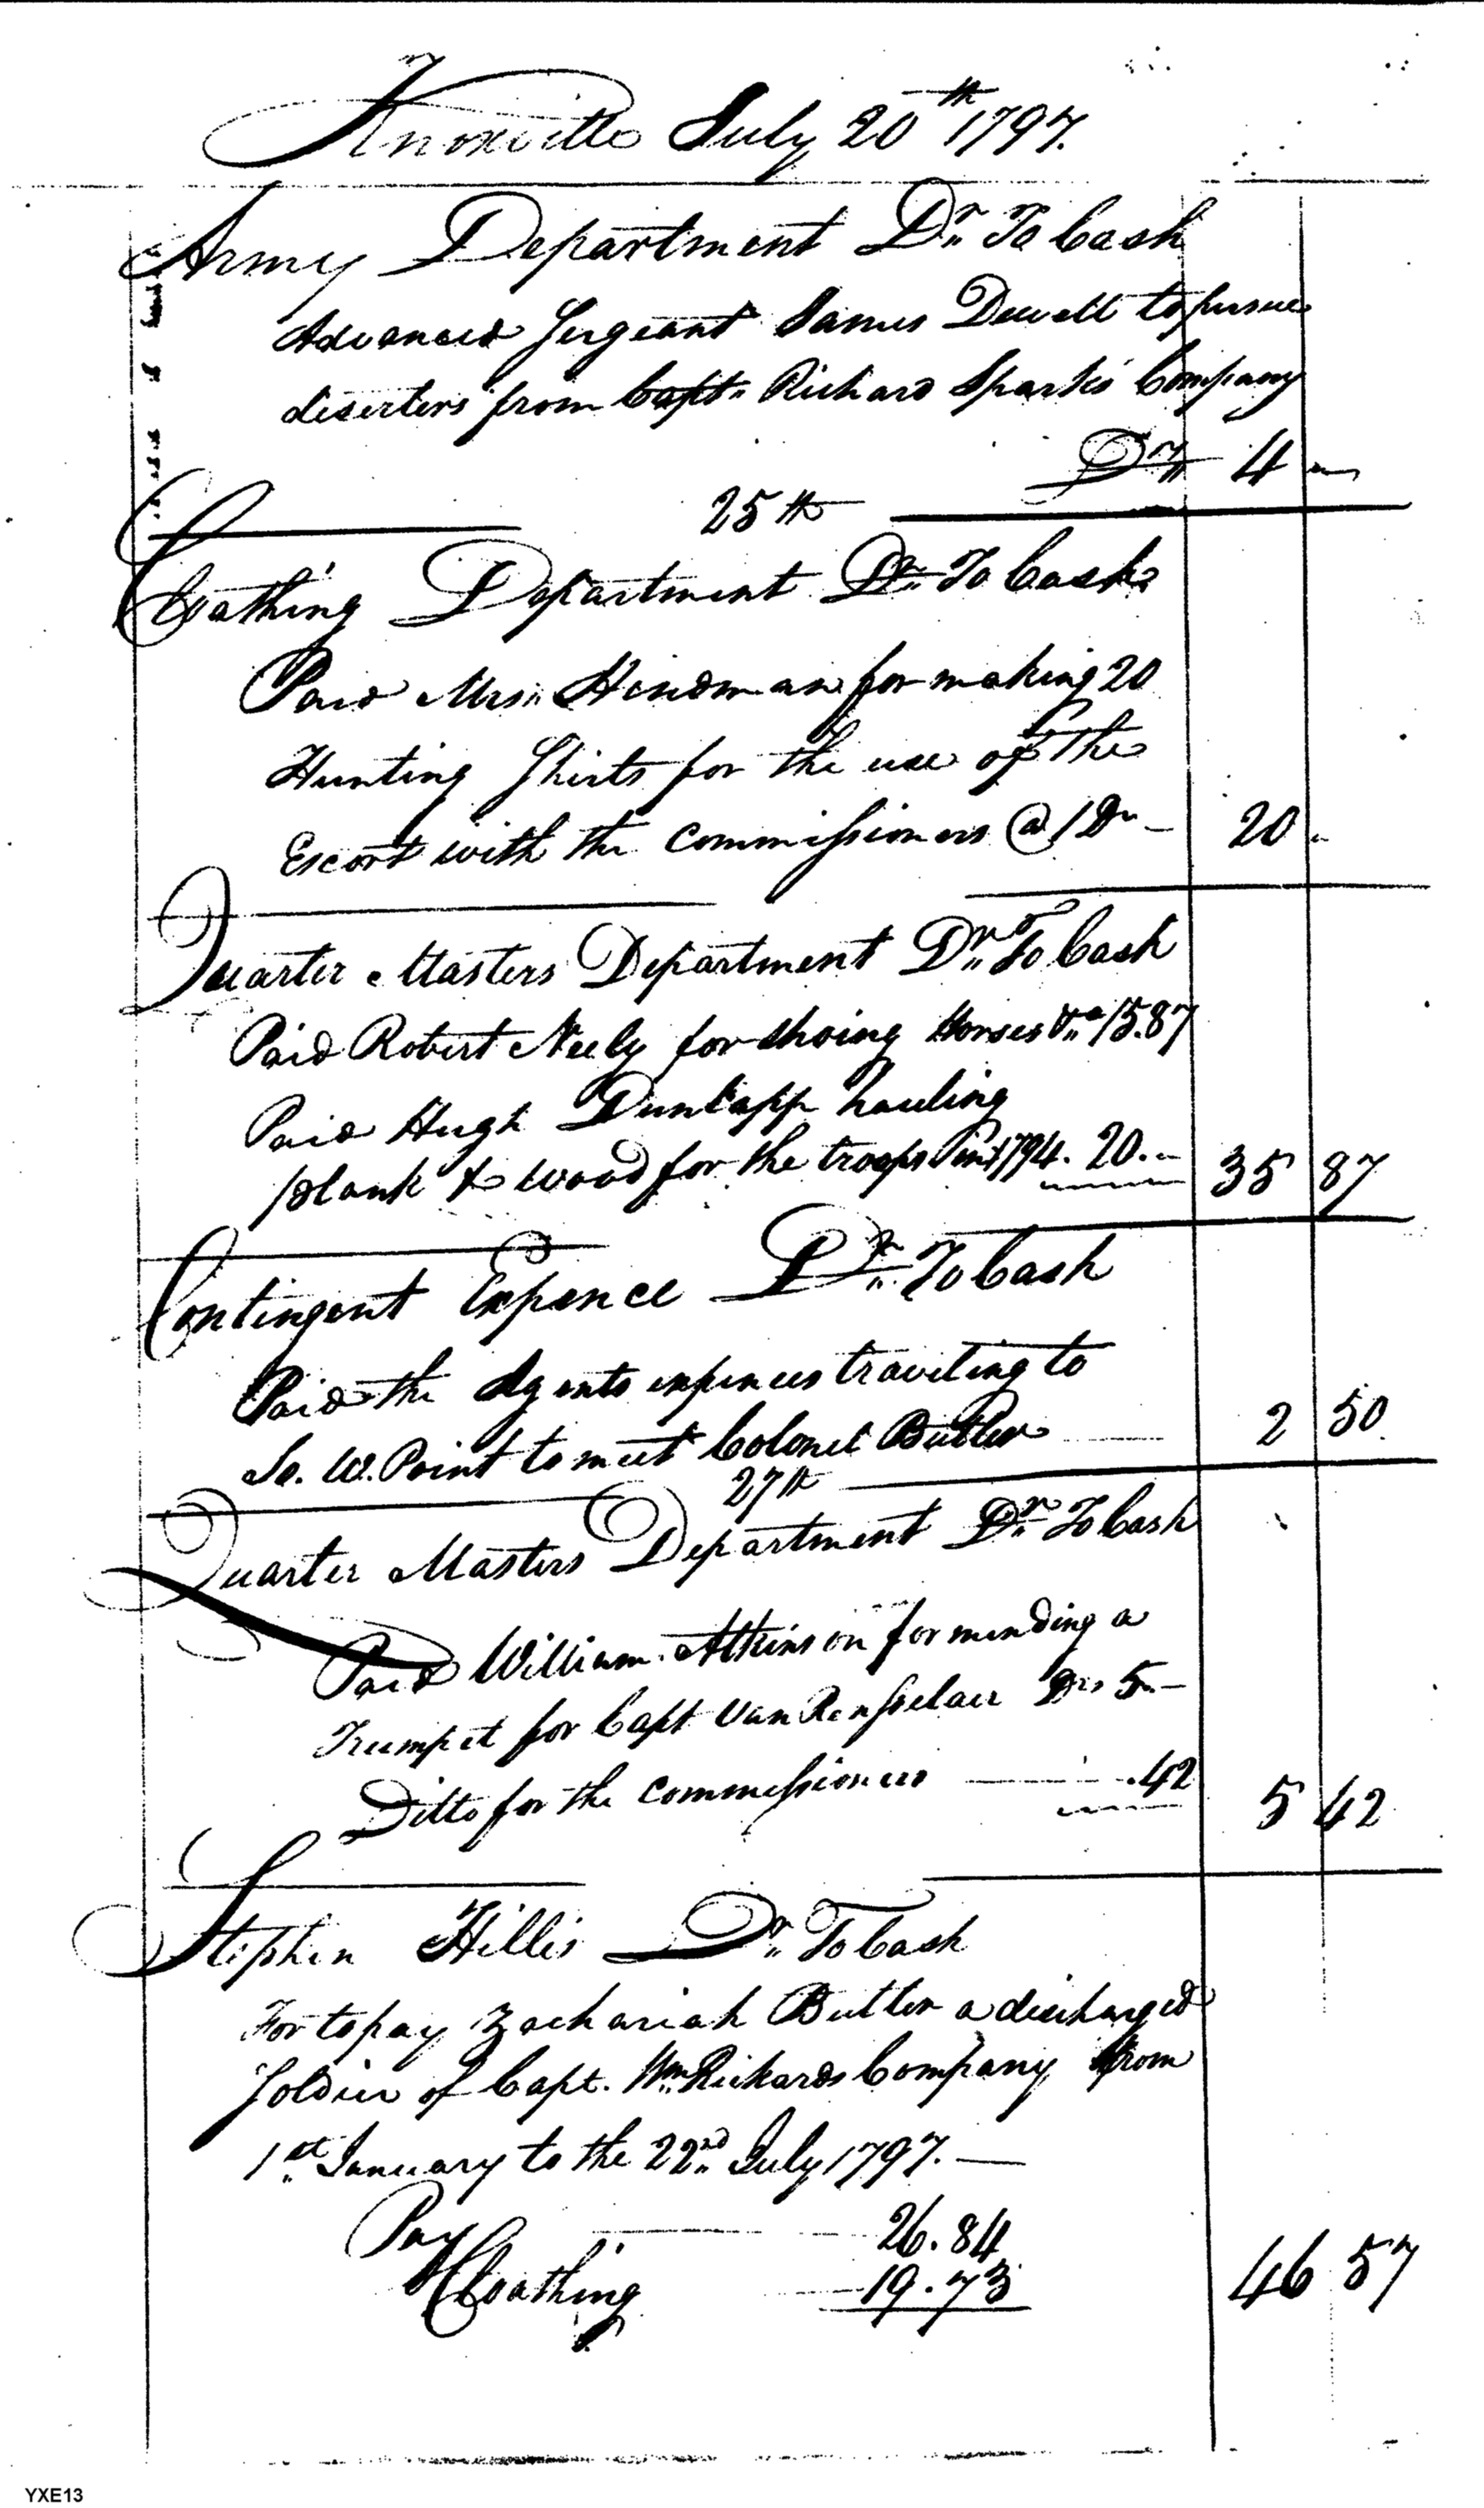 Knoxville July 20th 1797.
Army Department Dr. To Cash
Advanced Sergeant James Dewell to pursue
deserters from Capt. Richard Sparks Company
Drs 4 —
25th
Cloathing Department Dr. To Cash
Paid Mrs. Hindman for making 20
Hunting Shirts for the use of the
Escort with the Commissioners @ 1 Dr. — 20 -
Quarter Masters Department Dr. To Cash
Paid Robert Neely for shoing Horses &c 15.87
Paid Hugh Dunlapp hauling
plank & wood for the troops 1794. 20. - 35 87
Contingent Expence Dr. To Cash
Paid the Agents expences traveling to
So. W. Point to meet Colonel Butler 2 50
27th
Quarter Masters Department Dr. To Cash
Paid William Atkinson for mending a
Trumpet for Capt Van Rensselaer Drs 5. —
Ditto for the commissioners .42
5 42
Stephen Hillis Dr. To Cash
For to pay Zachariah Butler a discharged
Soldier of Capt. Wm. Rickards Company from
1st. January to the 22nd. July 1797. —
Pay 26.84
Cloathing 19.73 46 57
YXE13